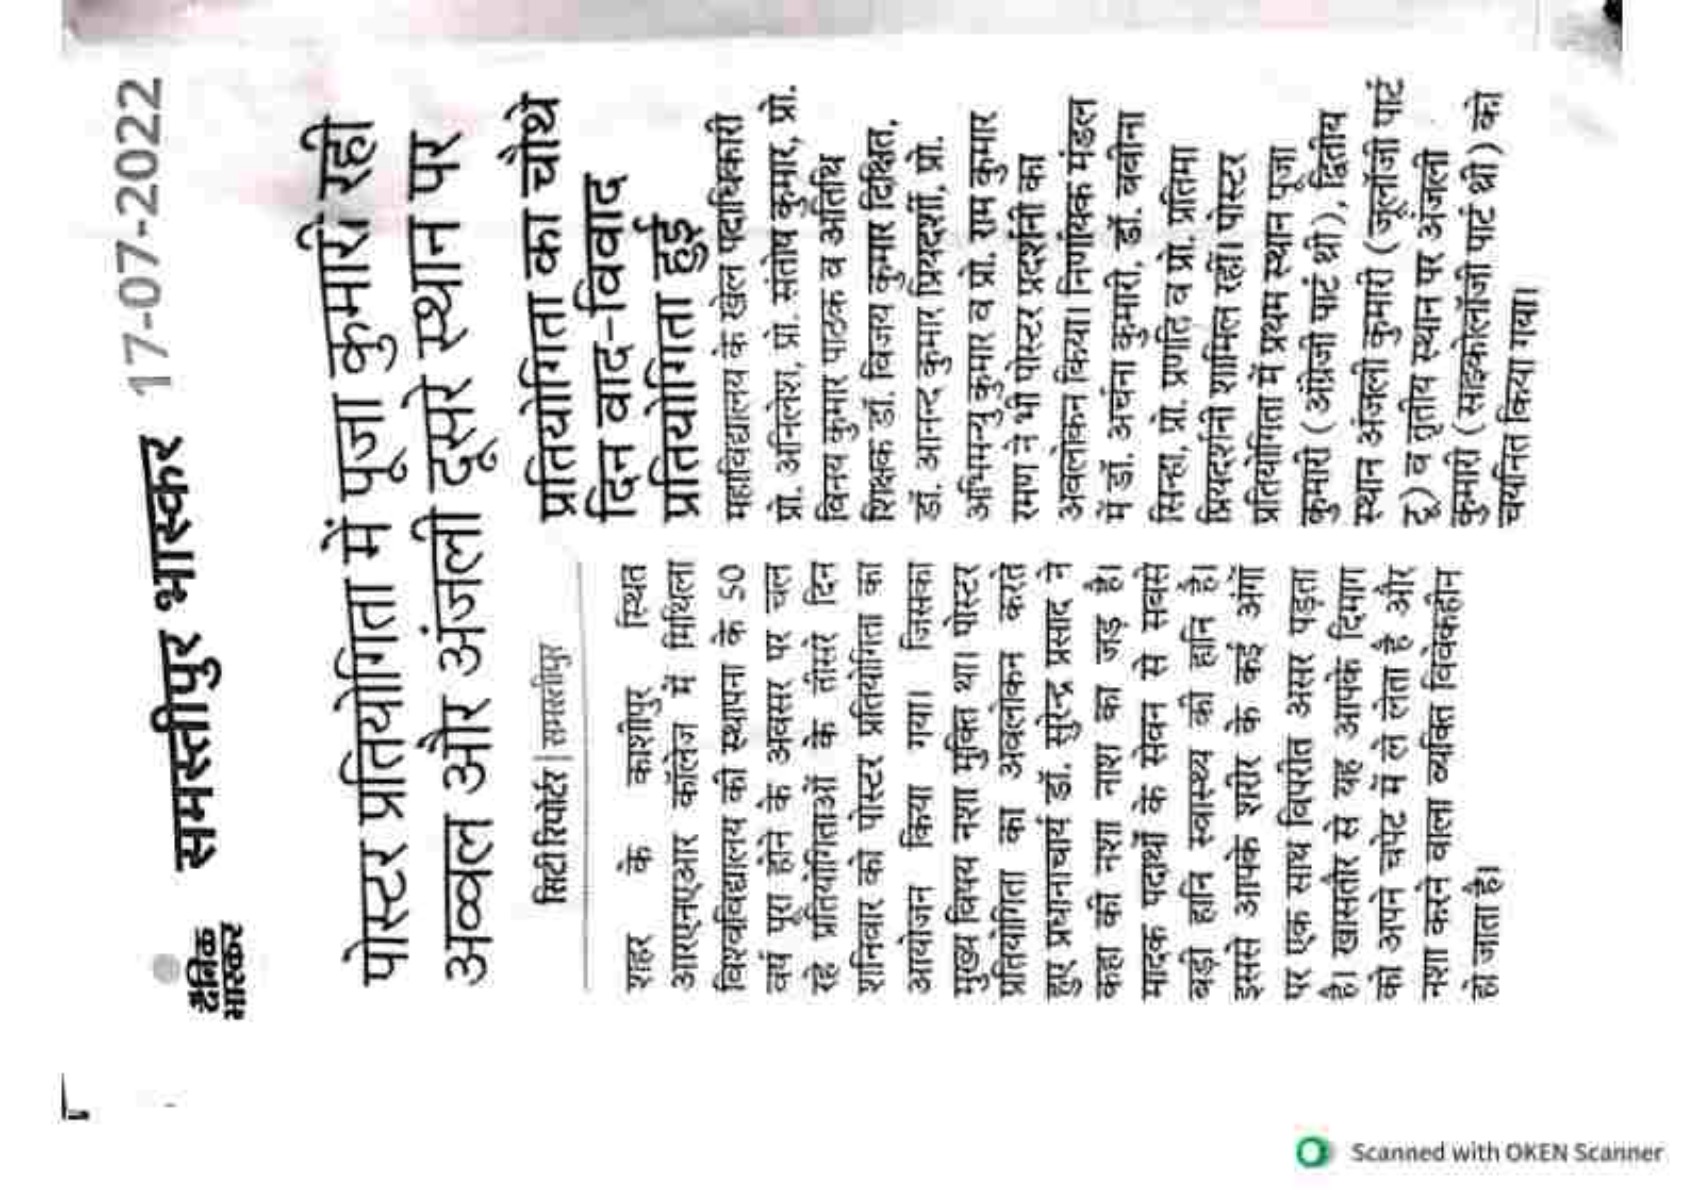 दैनिक
भास्कर
समस्तीपुर भास्कर 17-07-2022
पोस्टर प्रतियोगिता में पूजा कुमारी रही
अव्वल और अंजली दूसरे स्थान पर
सिटी रिपोर्टर | समस्तीपुर
शहर के काशीपुर स्थित
आरएनएआर कॉलेज में मिथिला
विश्वविद्यालय की स्थापना के 50
वर्ष पूरा होने के अवसर पर चल
रहे प्रतियोगिताओं के तीसरे दिन
शनिवार को पोस्टर प्रतियोगिता का
आयोजन किया गया। जिसका
मुख्य विषय नशा मुक्ति था। पोस्टर
प्रतियोगिता का अवलोकन करते
हुए प्रधानाचार्य डॉ. सुरेन्द्र प्रसाद ने
कहा की नशा नाश का जड़ है।
मादक पदार्थों के सेवन से सबसे
बड़ी हानि स्वास्थ्य की हानि है।
इससे आपके शरीर के कई अंगों
पर एक साथ विपरीत असर पड़ता
है। खासतौर से यह आपके दिमाग
को अपने चपेट में ले लेता है और
नशा करने वाला व्यक्ति विवेकहीन
हो जाता है।
प्रतियोगिता का चौथे
दिन वाद-विवाद
प्रतियोगिता हुई
महाविद्यालय के खेल पदाधिकारी
प्रो. अनिलेश, प्रो. संतोष कुमार, प्रो.
विनय कुमार पाठक व अतिथि
शिक्षक डॉ. विजय कुमार दिक्षित,
डॉ. आनन्द कुमार प्रियदर्शी, प्रो.
अभिमन्यु कुमार व प्रो. राम कुमार
रमण ने भी पोस्टर प्रदर्शनी का
अवलोकन किया। निर्णायक मंडल
में डॉ. अर्चना कुमारी, डॉ. बबीना
सिन्हा, प्रो. प्रणति व प्रो. प्रतिमा
प्रियदर्शनी शामिल रहीं। पोस्टर
प्रतियोगिता में प्रथम स्थान पूजा
कुमारी (अंग्रेजी पार्ट थ्री), द्वितीय
स्थान अंजली कुमारी (जूलॉजी पार्ट
टू) व तृतीय स्थान पर अंजली
कुमारी (साइकोलॉजी पार्ट थ्री) को
चयनित किया गया।
Scanned with OKEN Scanner